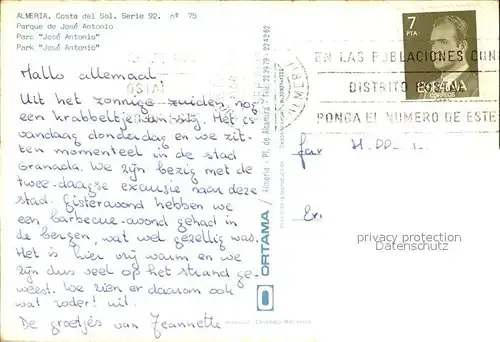 ALMERIA. Costa del Sol. Serie 92. nº 75
Parque de José Antonio
Parc "José Antonio"
Park "José Antonio"
Hallo allemaal
Uit het zonnige zuiden nog
een krabbeltje Het is
vandaag donderdag en we zit-
ten momenteel in de stad
Granada. We zijn bezig met de
twee-daagse excursie naar deze
stad. Gisteravond hebben we
een barbecue-avond gehad in
de bergen, wat wel gezellig was.
Het is hier vrij warm en we
zijn dus veel op het strand ge-
weest. We zien er daarom ook
wat roder! uit.
De groetjes van Jeannette
ORTAMA / Almeria - Pl. de Altamira
7
PTA
ESPAÑA
CORREOS
EN LAS POBLACIONES CON
DISTRITO POSTAL
PONGA EL NUMERO DE ESTE
Fam
privacy protection
Datenschutz